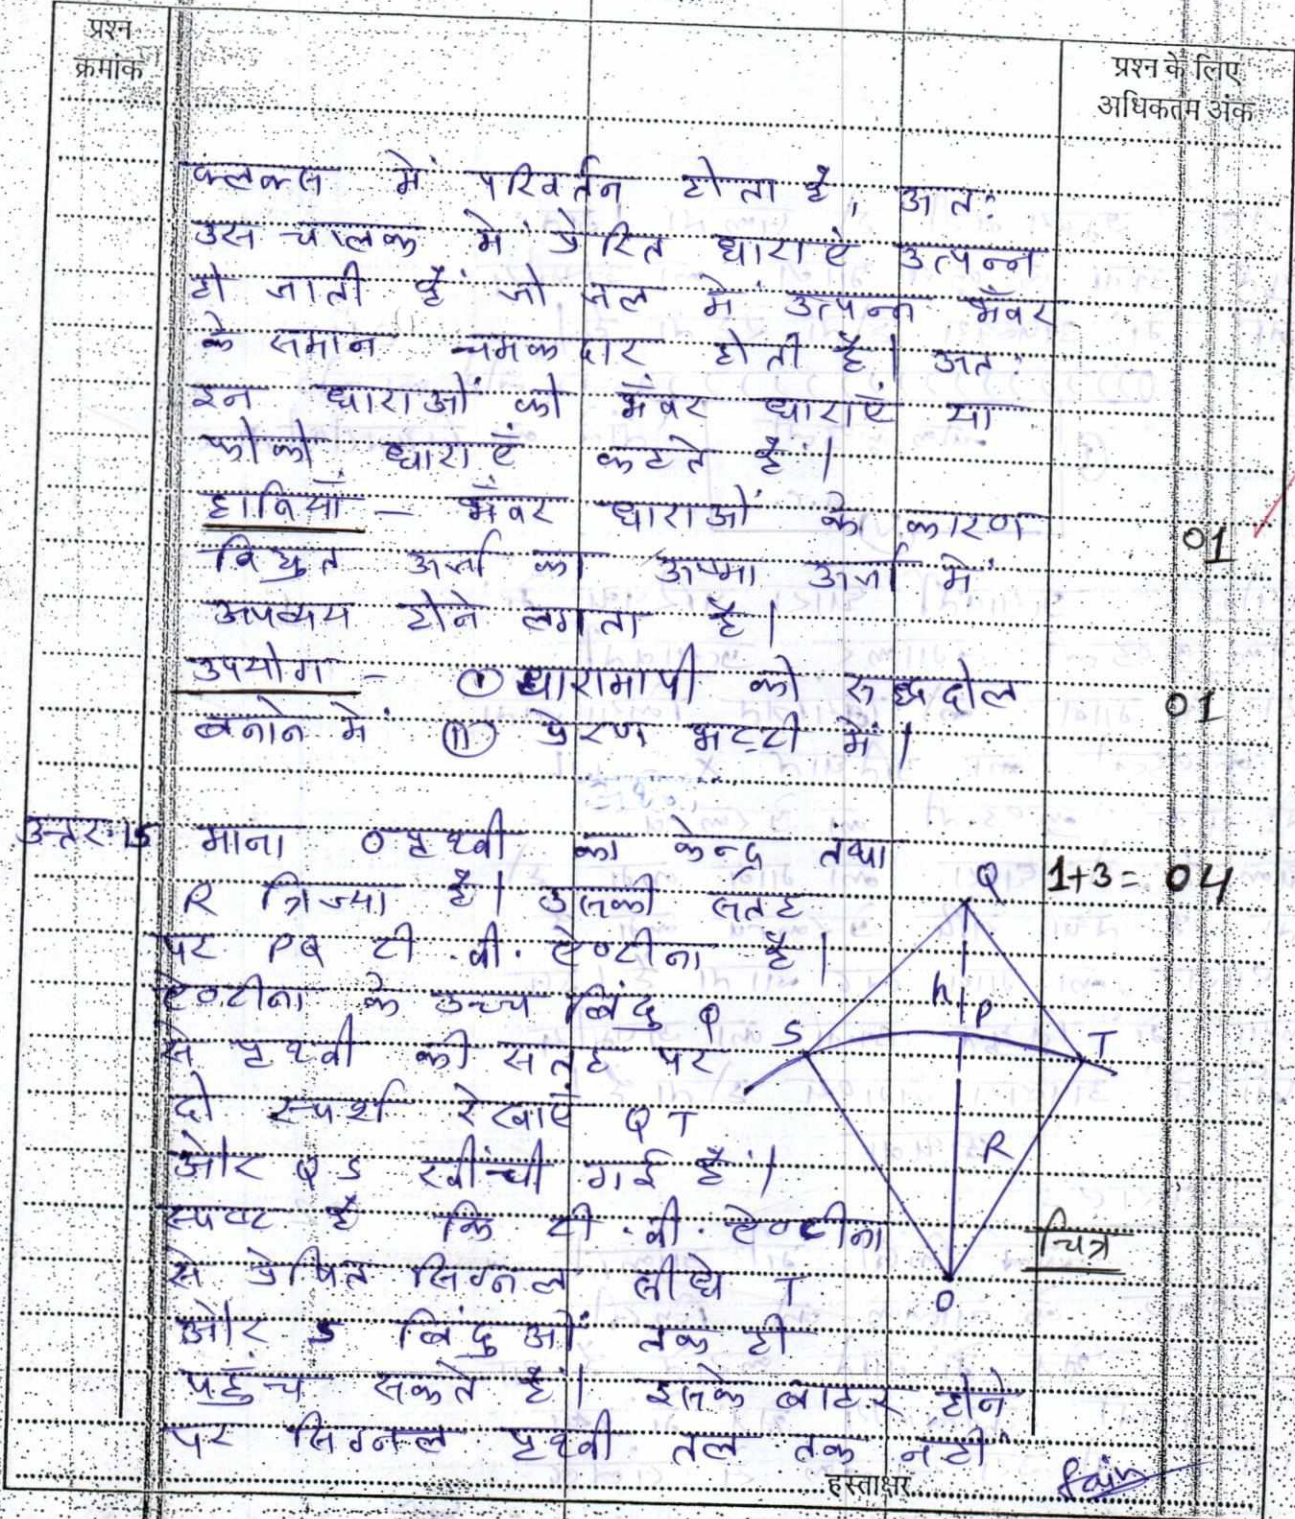 प्रश्न
क्रमांक
प्रश्न के लिए
अधिकतम अंक
फ्लक्स में परिवर्तन होता है, अतः
उस चालक में प्रेरित धाराऐं उत्पन्न
हो जाती हैं जो जल में उत्पन्न भँवर
के समान चमकदार होती है। अतः
इन धाराओं को भँवर धाराऐं या
फोको धाराऐं कहते हैं।
हानियाँ - भँवर धाराओं के कारण 01
विद्युत ऊर्जा का ऊष्मा ऊर्जा में
अपव्यय होने लगता है।
उपयोग - (i) धारामापी को रुद्धदोल 01
बनाने में (ii) प्रेरण भट्टी में।
उत्तर:15 माना O पृथ्वी का केन्द्र तथा
Q 1+3 = 04
R त्रिज्या है। उसकी सतह
पर PQ टी.वी. ऐण्टीना है।
ऐण्टीना के उच्च बिंदु Q h P
से पृथ्वी की सतह पर S T
दो स्पर्श रेखाऐं QT
और QS खींची गई हैं। R
स्पष्ट है कि टी.वी. ऐण्टीना चित्र
से प्रेषित सिग्नल सीधे T O
और S बिंदुओं तक ही
पहुँच सकते हैं। इसके बाहर होने
पर सिग्नल पृथ्वी तल तक नहीं
हस्ताक्षर